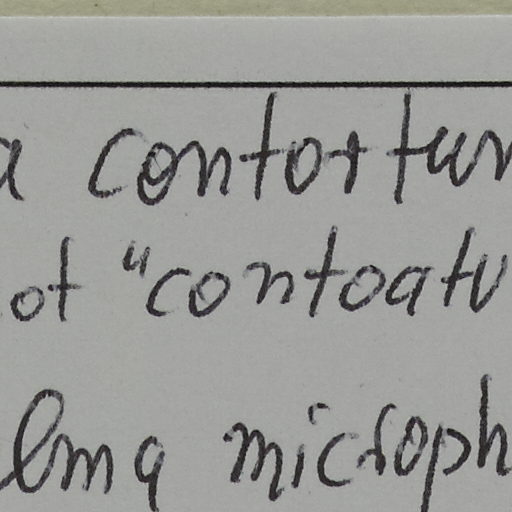 a contortum
ot "contoatu
lma microph